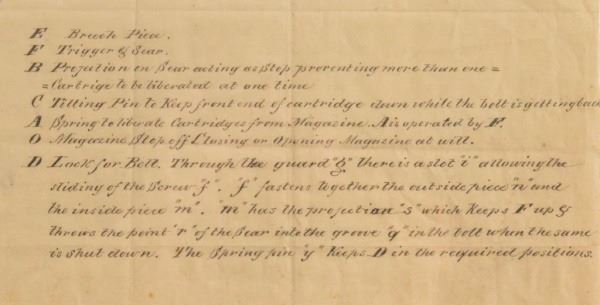 E Breech Piece.
F Trigger & Sear.
B Projection on Sear acting as Stop preventing more than one =
= Cartrige to be liberated at one time
C Tilting Pin to Keep front end of cartridge down while the bolt is getting back
A Spring to liberate Cartridges from Magazine. A is operated by F.
O Magazine Stop off Closing or Opening Magazine at will.
D Lock for Bolt. Through the guard "g" there is a slot "i" allowing the
sliding of the Screw "f". "f" fastens together the outside piece "n" and
the inside piece "m". "m" has the projection "s" which Keeps F up &
throws the point "r" of the Sear into the groove "q" in the bolt when the same
is shut down. The Spring pin "y" Keeps D in the required positions.